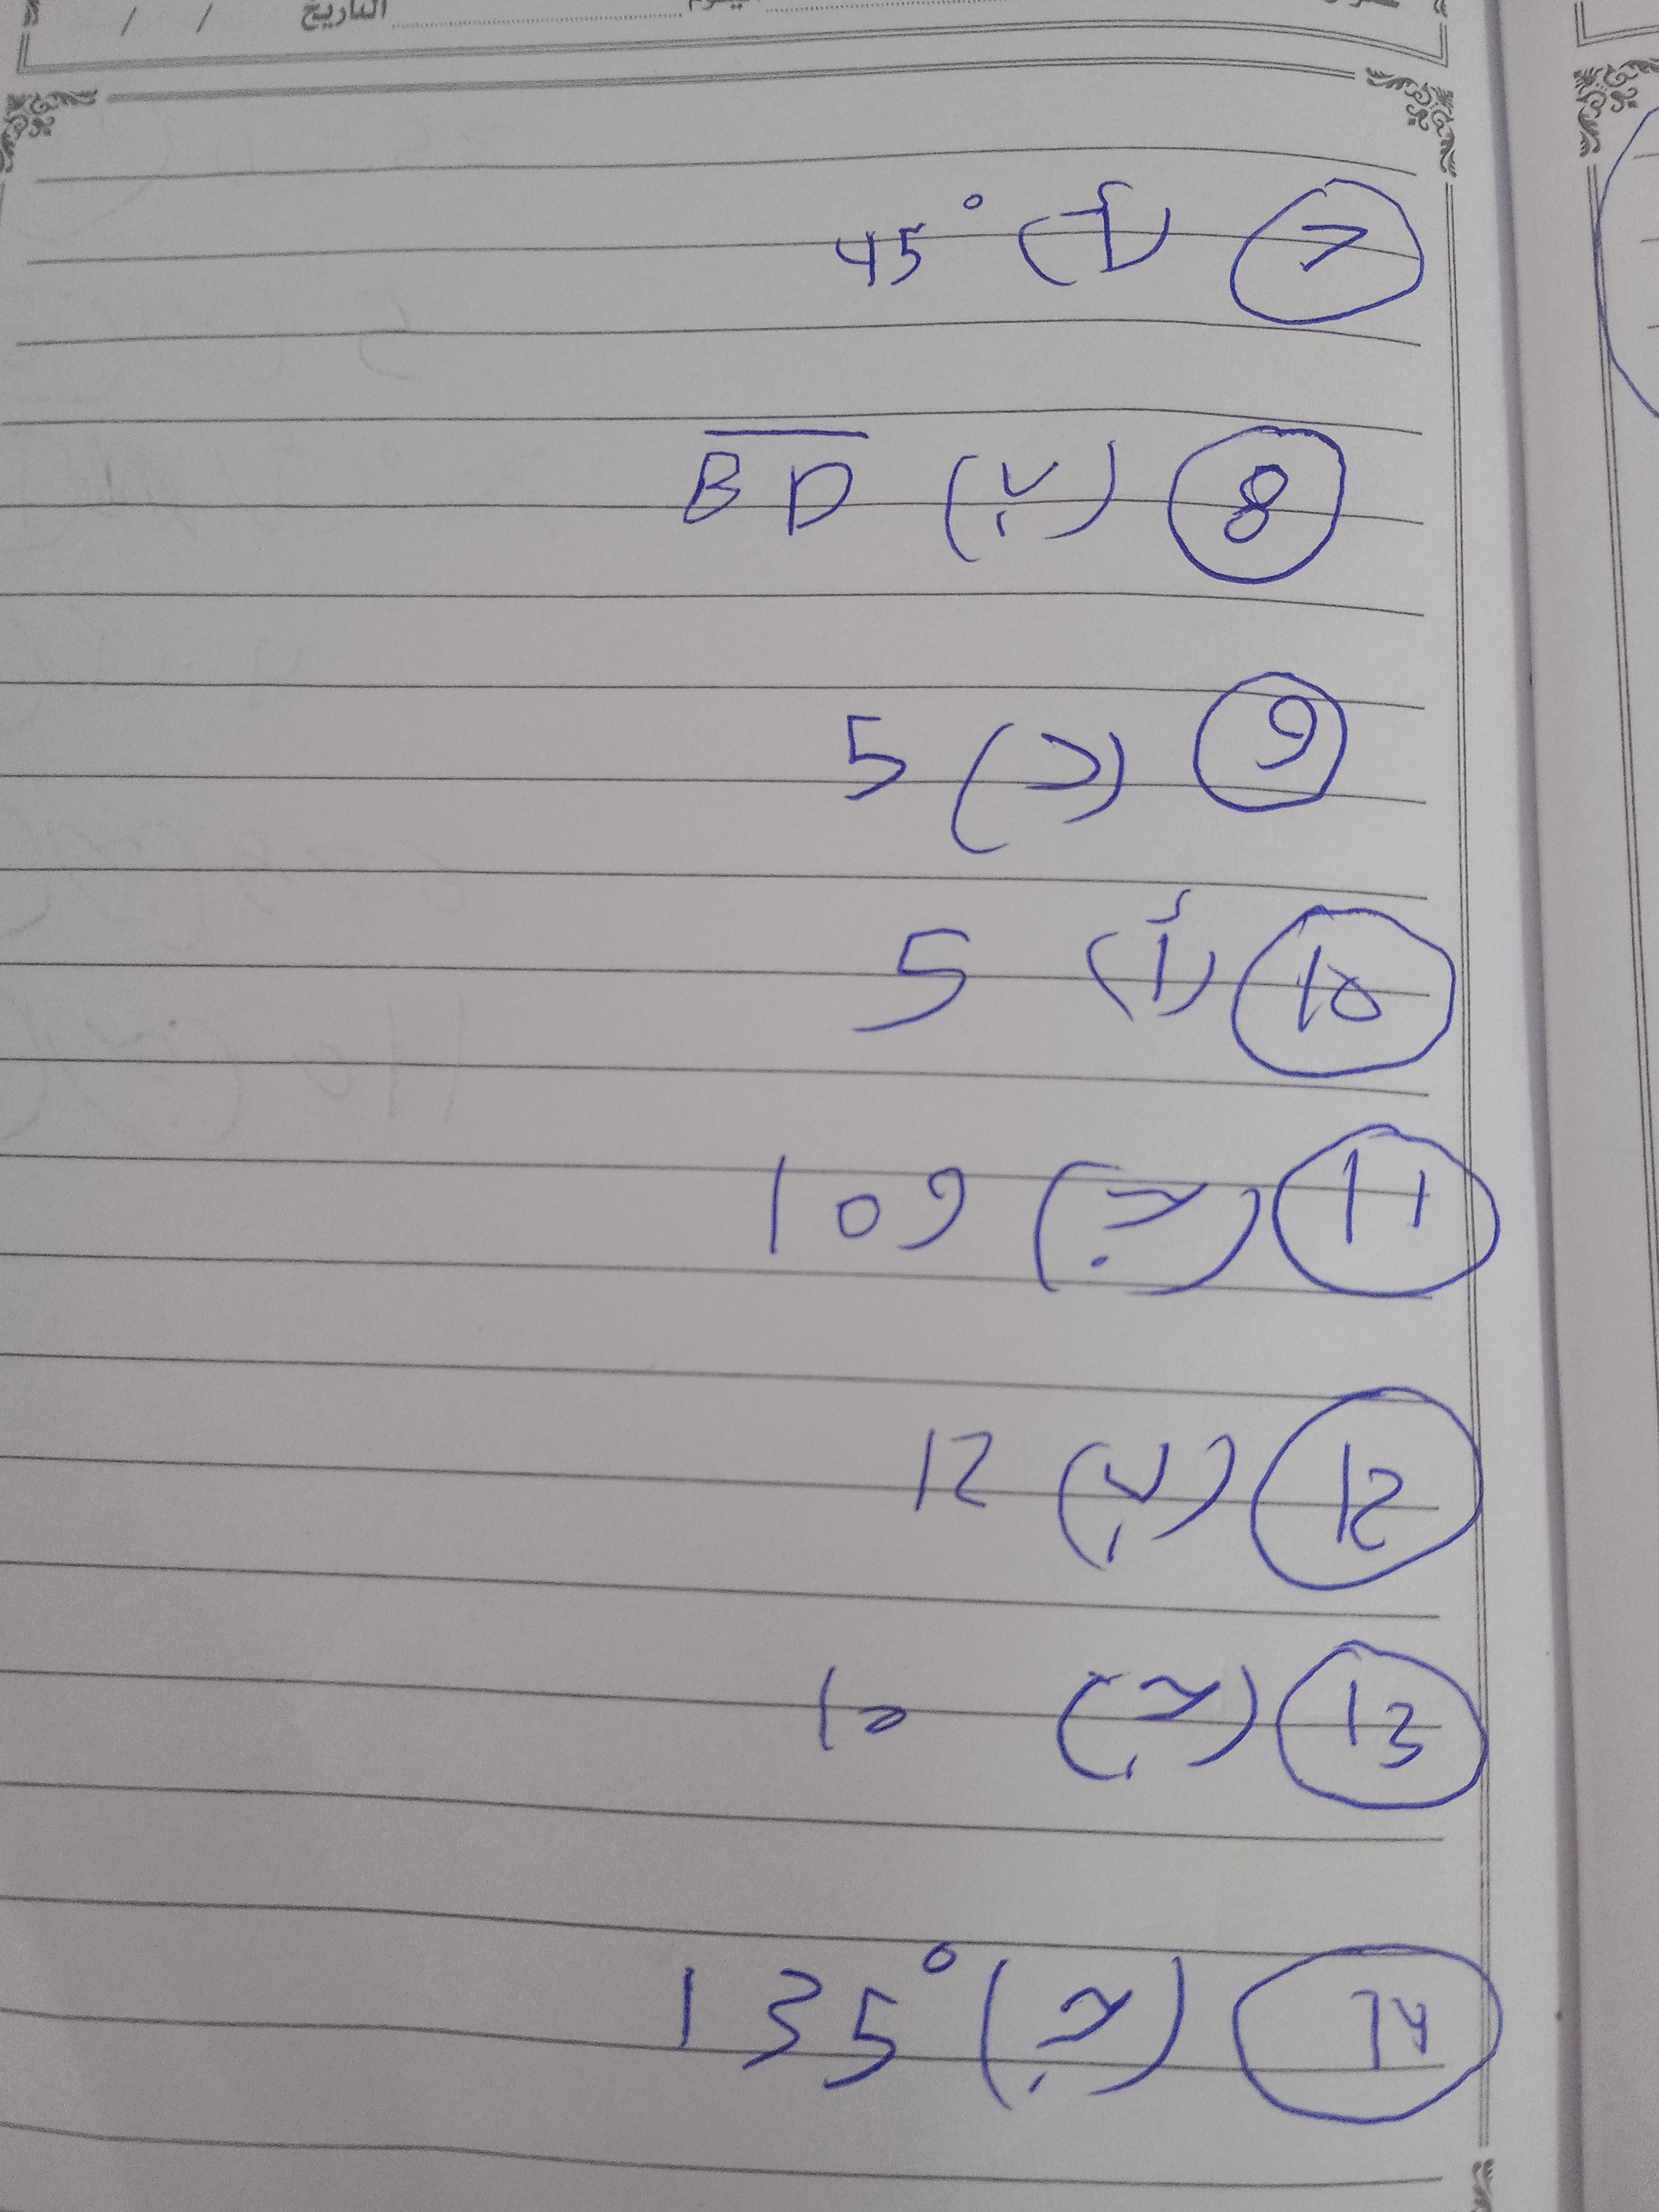 التاريخ / /
7 (أ) 45°
8 (ب) BD
9 (د) 5
10 (أ) 5
11 (ج) 109
12 (ب) 12
13 (ج) 10
14 (ج) 135°